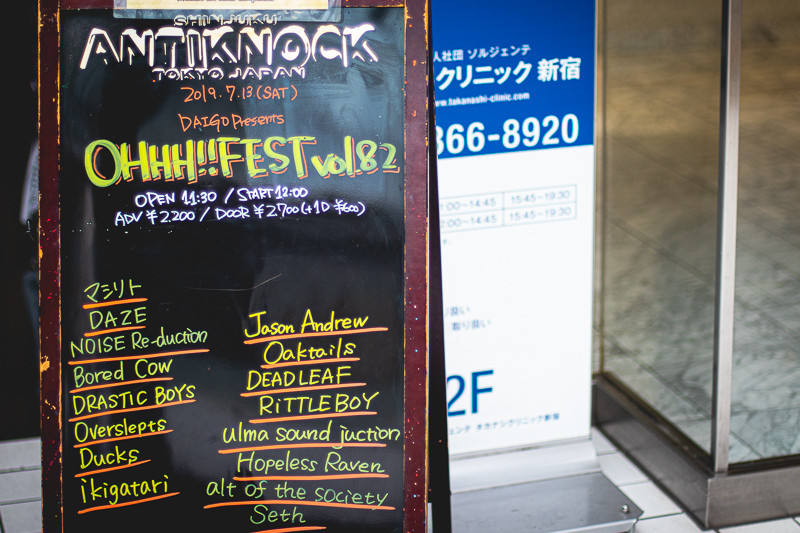 SHINJUKU
ANTIKNOCK
TOKYO JAPAN
2019.7.13(SAT)
DAIGO Presents
OHHH!!FEST vol.82
OPEN 11:30 / START 12:00
ADV ¥2.200 / DOOR ¥2.700 (+1D ¥600)
マシリト
DAZE
NOISE Re-duction
Bored Cow
DRASTIC BOYS
Overslepts
Ducks
ikigatari
Jason Andrew
Oaktails
DEADLEAF
RiTTLEBOY
ulma sound juction
Hopeless Raven
alt of the society
Seth
人社団 ソルジェンテ
クリニック 新宿
www.takanashi-clinic.com
366-8920
:00~14:45 15:45~19:30
:00~14:45 15:45~19:30
扱い
取り扱い
2F
ジェンテ タカナシクリニック新宿